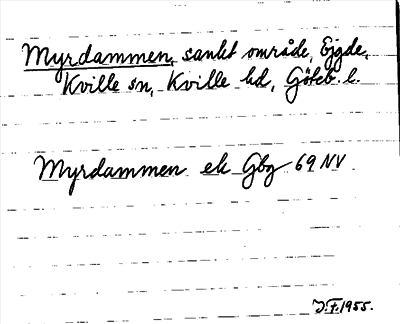 Myrdammen, sankt område, Ejgde,
Kville sn, Kville hd, Göteb. l.
Myrdammen ek Gbg 69 NV
J.F. 1955.